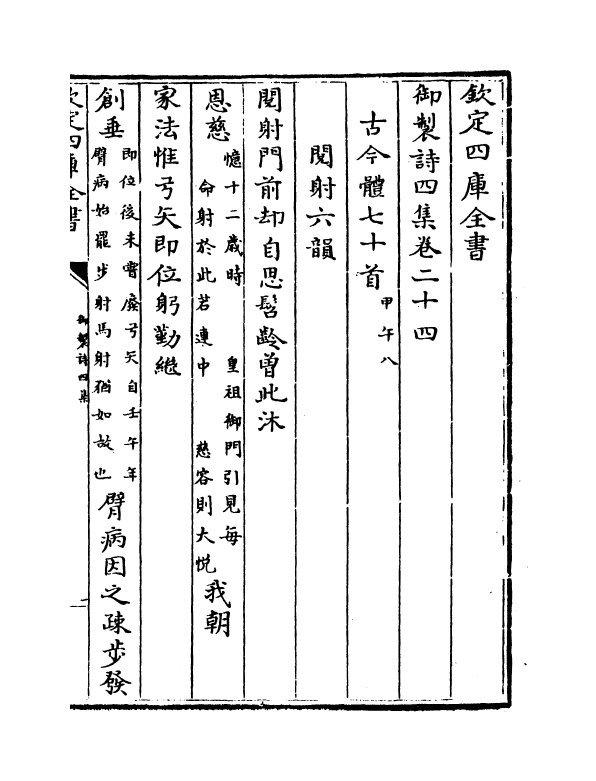 欽定四庫全書
御製詩四集卷二十四
古今體七十首甲午八
閱射六韻
閱射門前却自思髫齡曾此沐
恩慈憶十二歲時　皇祖御門引見每命射於此若連中　慈容則大悅我朝
家法惟弓矢即位躬勤繼
創垂即位後未嘗廢弓矢自壬午年臂病始罷步射馬射猶如故也臂病因之疎步發
欽定四庫全書
御製詩四集
一